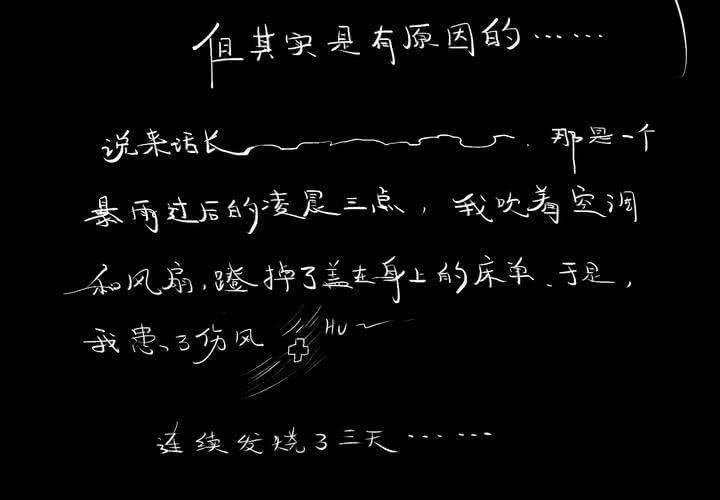 但其实是有原因的……
说来话长～～～. 那是一个
暴雨过后的凌晨三点，我吹着空调
和风扇，蹬掉了盖在身上的床单、于是，
我患了伤风 Hu~
连续发烧了三天……